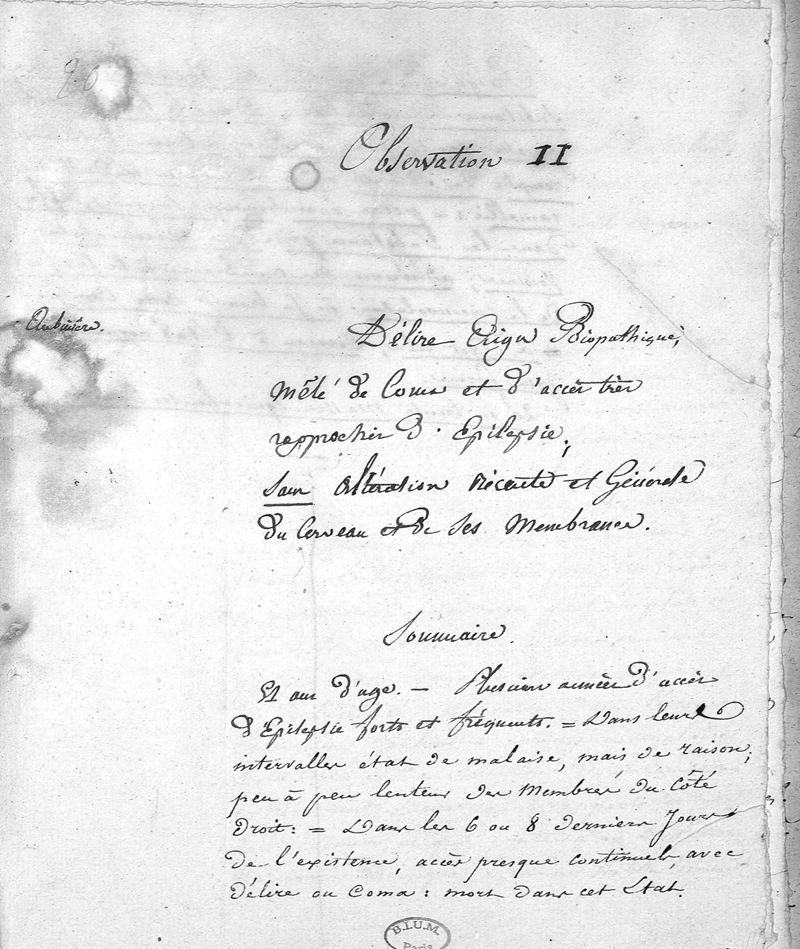 Observation II
Aubinière.
Délire Aigu Biopathique,
Mêlé de Coma et d'accès très
rapprochés d'Epilepsie,
Sans Altération Récente et Générale
du Cerveau et de Ses Membranes.
Sommaire.
ans d'age. — Plusieurs années d'accès
d'Epilepsie forts et fréquents. = Dans leurs
intervalles état de malaise, mais de raison;
peu à peu lenteur des Membres du Côté
droit: = Dans les 6 ou 8 derniers Jours
de l'existence, accès presque continuels, avec
délire ou Coma: mort dans cet Etat.
B.I.U.M.
Paris